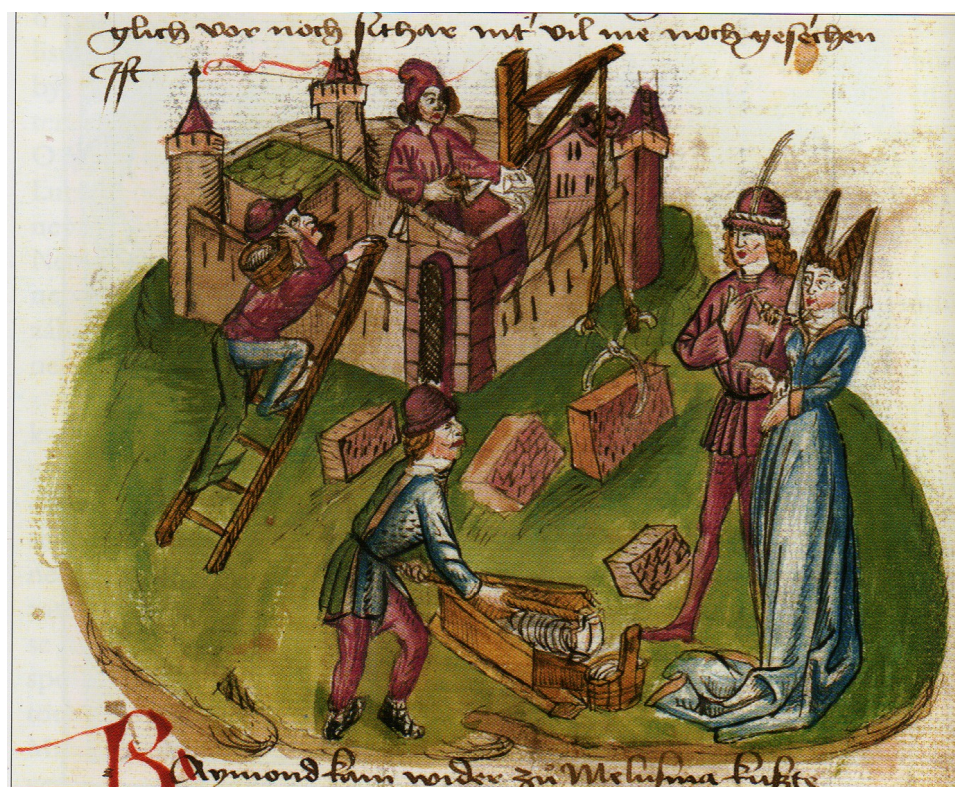 glich vor noch sithar nit vil me noch gesechen
Jst
Raymond kam wider zuͦ Melusina kuszte